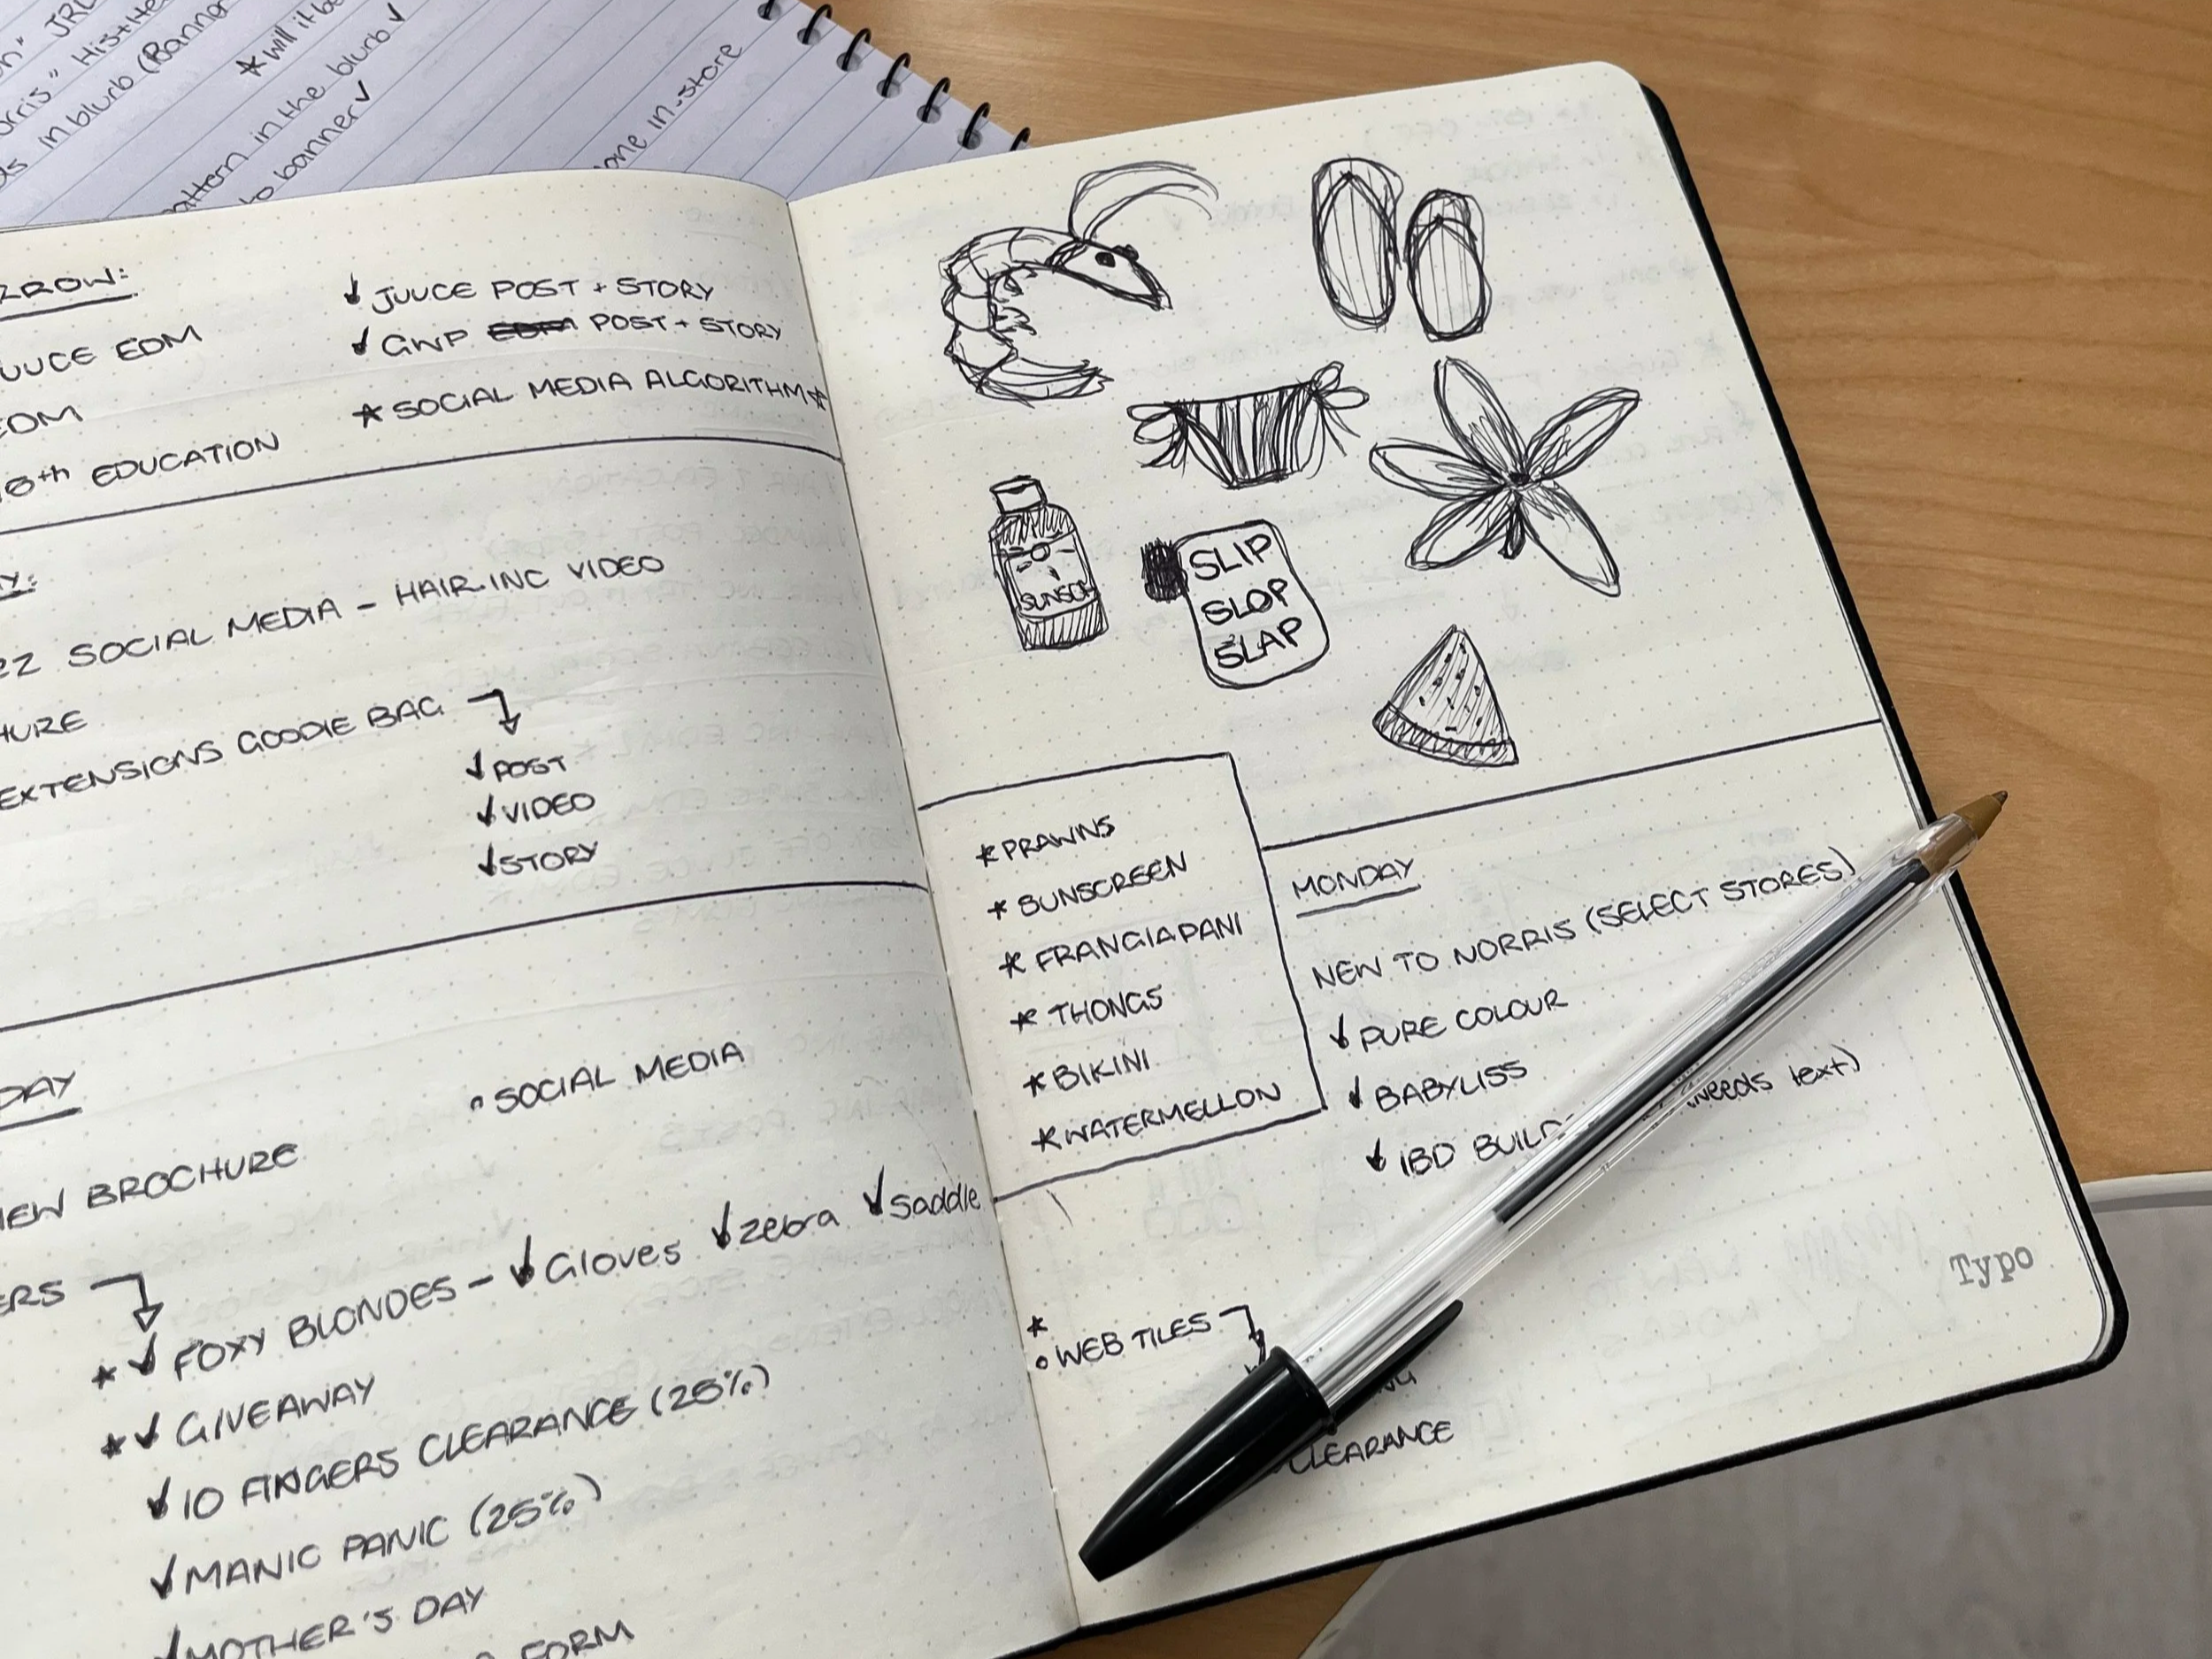 on" JRL
orris" Histite
in blurb (Banner
*will it be
pattern in the blurb ✓
to banner ✓
one in-store
RROW:
JUUCE EDM
EDM
18th EDUCATION
✓ JUUCE POST + STORY
✓ GWP POST + STORY
* SOCIAL MEDIA ALGORITHM *
AY:
SOCIAL MEDIA - HAIR.INC VIDEO
HURE
EXTENSIONS GOODIE BAG
✓ POST
✓ VIDEO
✓ STORY
DAY
NEW BROCHURE
• SOCIAL MEDIA
ERS
* ✓ FOXY BLONDES - ✓ Gloves ✓ zebra ✓ saddle
* ✓ GIVEAWAY
✓ 10 FINGERS CLEARANCE (25%)
✓ MANIC PANIC (25%)
✓ MOTHER'S DAY
FORM
SUNSCR
SLIP
SLOP
SLAP
* PRAWNS
* SUNSCREEN
* FRANGIAPANI
* THONGS
* BIKINI
* WATERMELLON
MONDAY
NEW TO NORRIS (SELECT STORES)
✓ PURE COLOUR
✓ BABYLISS
✓ IBD BUILD (needs text)
*
○ WEB TILES
CLEARANCE
Typo